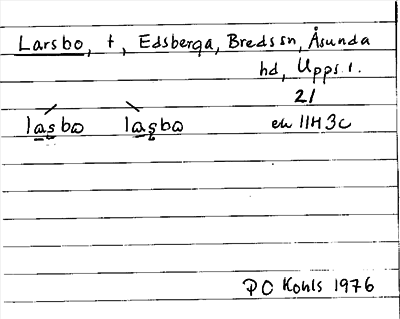 Larsbo, t, Edsberga, Bredssn, Åsunda
hd, Upps. l.
21
lasbo lasbo ek 11H3c
PO Kohls 1976